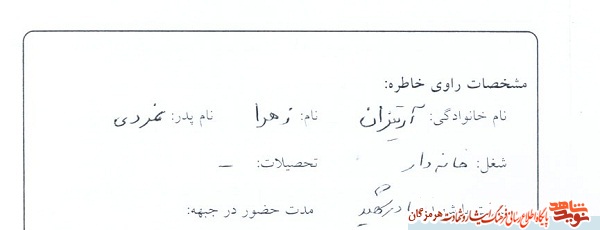 مشخصات راوی خاطره:
نام خانوادگی: آریژان نام: زهرا نام پدر:
شغل: خانه دار تحصیلات: –
مادر شهید مدت حضور در جبهه:
نوید شاهد پایگاه اطلاع رسانی فرهنگ ایثار و شهادت هرمزگان